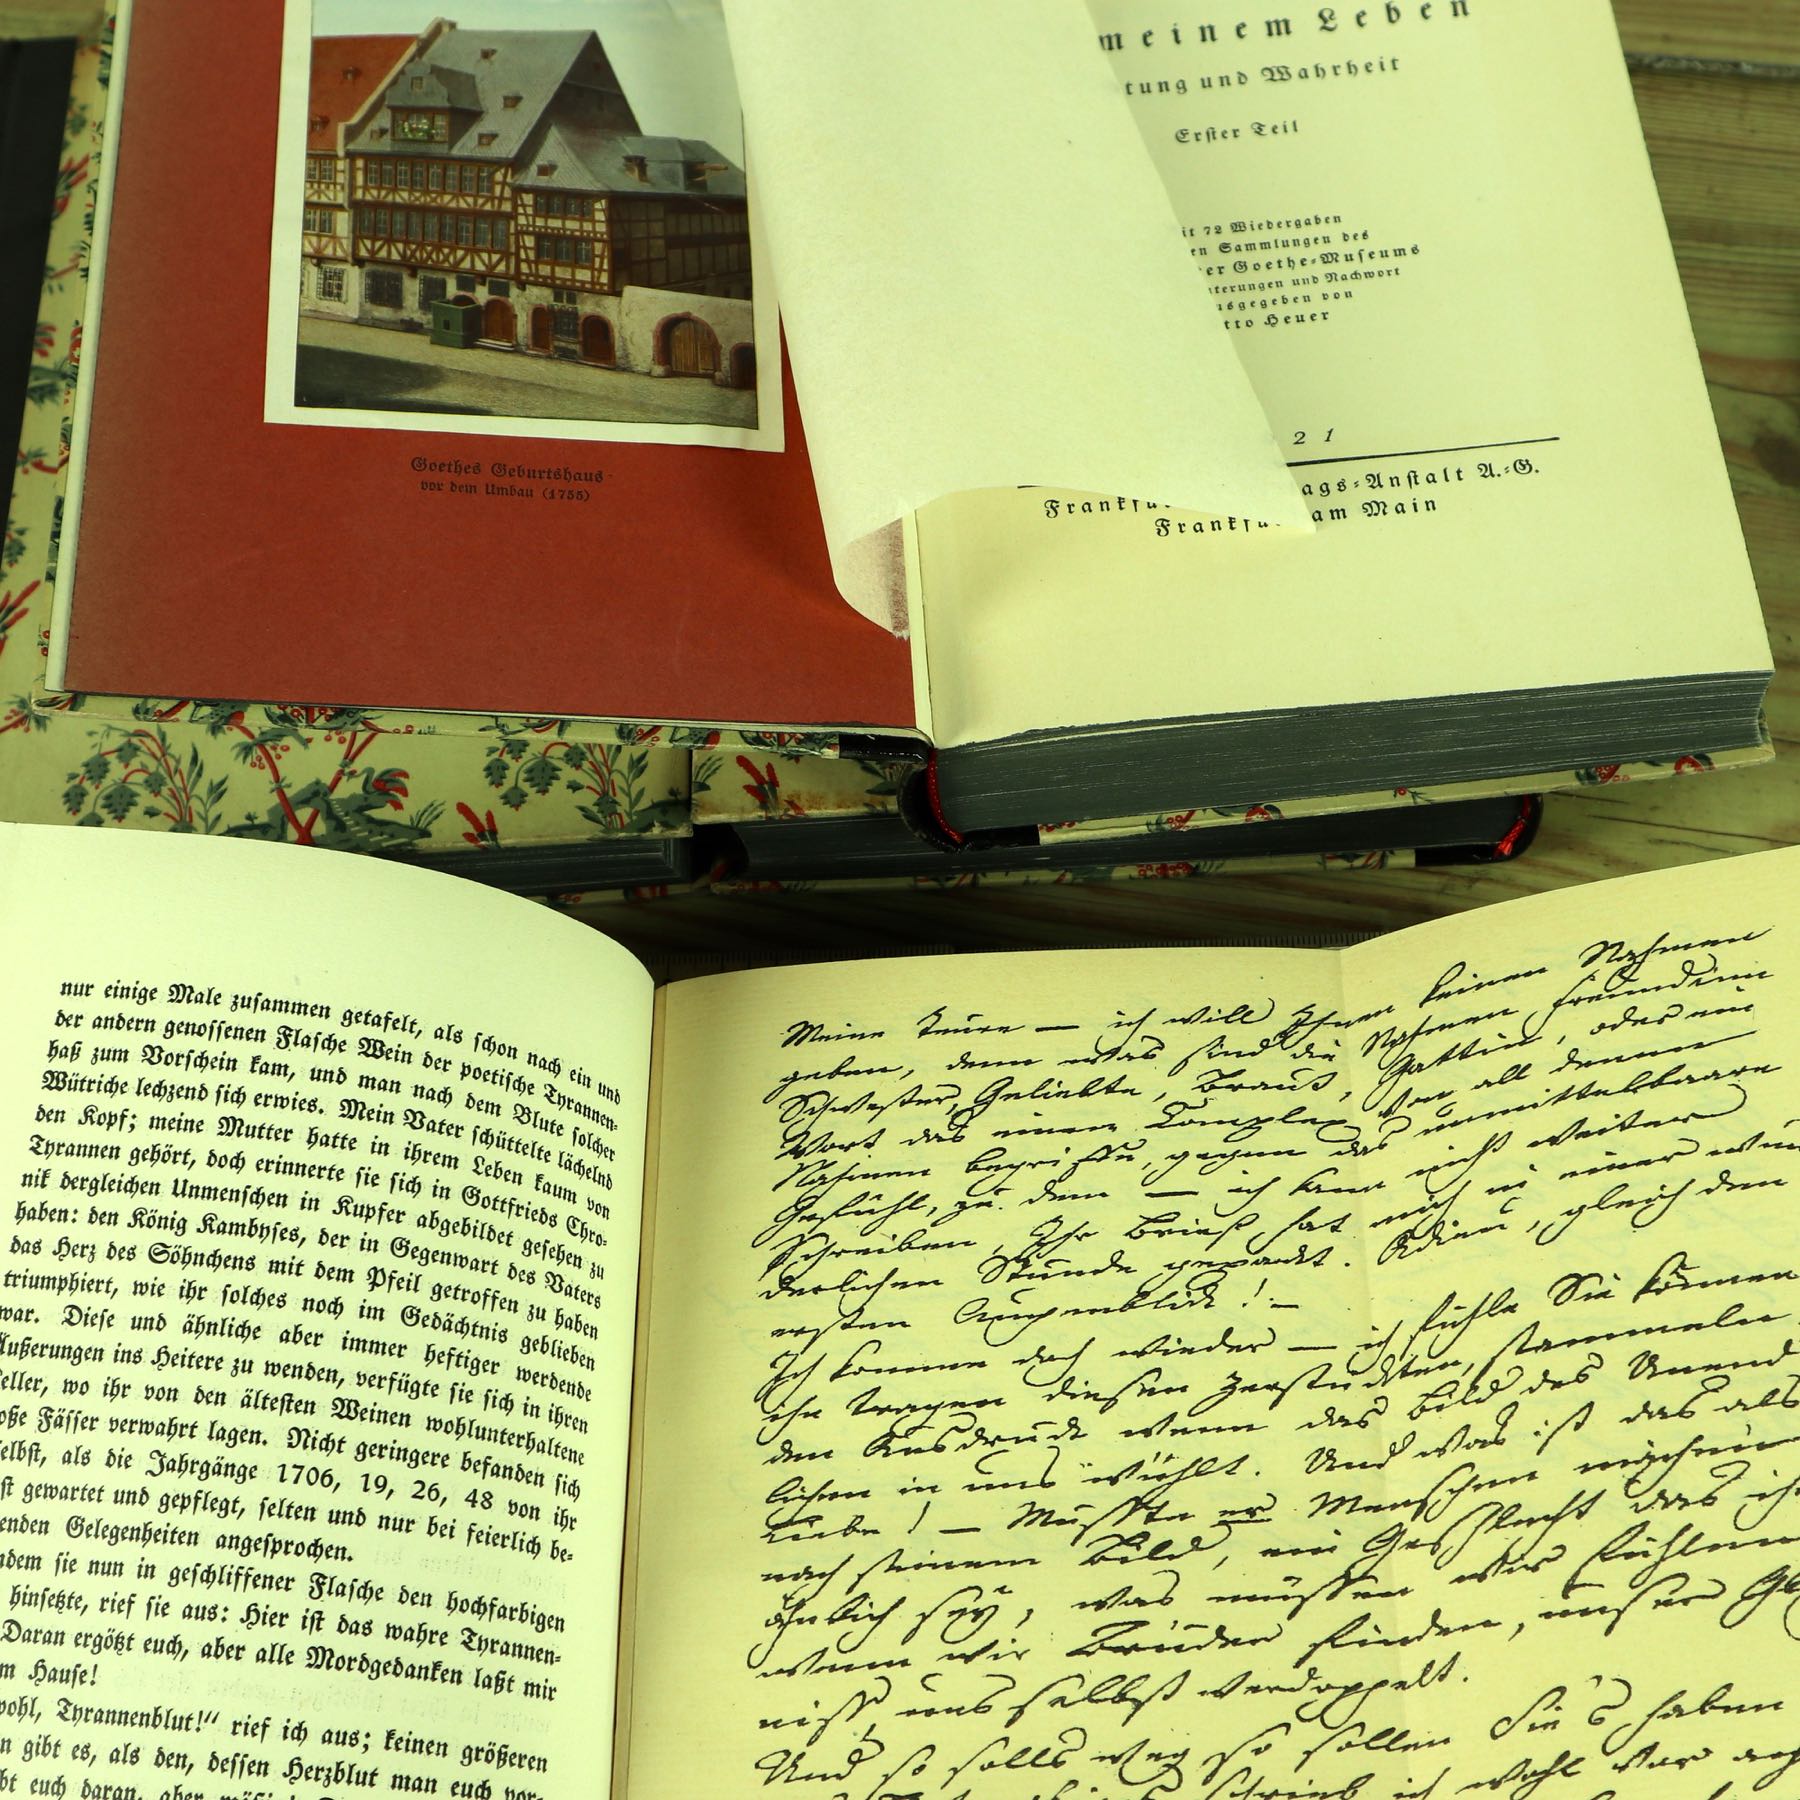 meinem Leben
tung und Wahrheit
Erster Teil
it 72 Wiedergaben
en Sammlungen des
er Goethe-Museums
terungen und Nachwort
usgegeben von
tto Heuer
21
ags-Anstalt A.-G.
am Main
Goethes Geburtshaus
vor dem Umbau (1755)
nur einige Male zusammen getafelt, als schon nach ein und
der andern genossenen Flasche Wein der poetische Tyrannen-
haß zum Vorschein kam, und man nach dem Blute solcher
Wütriche lechzend sich erwies. Mein Vater schüttelte lächelnd
den Kopf; meine Mutter hatte in ihrem Leben kaum von
Tyrannen gehört, doch erinnerte sie sich in Gottfrieds Chro-
nik dergleichen Unmenschen in Kupfer abgebildet gesehen zu
haben: den König Kambyses, der in Gegenwart des Vaters
das Herz des Söhnchens mit dem Pfeil getroffen zu haben
triumphiert, wie ihr solches noch im Gedächtnis geblieben
war. Diese und ähnliche aber immer heftiger werdende
Äußerungen ins Heitere zu wenden, verfügte sie sich in ihren
eller, wo ihr von den ältesten Weinen wohlunterhaltene
oße Fässer verwahrt lagen. Nicht geringere befanden sich
elbst, als die Jahrgänge 1706, 19, 26, 48 von ihr
st gewartet und gepflegt, selten und nur bei feierlich be-
enden Gelegenheiten angesprochen.
ndem sie nun in geschliffener Flasche den hochfarbigen
hinsetzte, rief sie aus: Hier ist das wahre Tyrannen-
Daran ergötzt euch, aber alle Mordgedanken laßt mir
m Hause!
wohl, Tyrannenblut!“ rief ich aus; keinen größeren
n gibt es, als den, dessen Herzblut man euch vor-
bt euch daran, aber
Meine Teure — ich will Ihnen keinen Nahmen
geben, denn was sind die Nahmen Freundinn
Schwester, Geliebte, Braut, Gattin, oder ein
Wort das einen Complex von all denen
Nahmen begriffe, gegen das unmittelbaare
Gefühl, zu dem — ich kann nicht weiter
schreiben, Ihr Brief hat mich in einer wun
derlichen Stunde gepackt. Adieu, gleich den
ersten Augenblick! —
Ich komme doch wieder — ich fühle Sie können
ihn tragen diesen zerstückten, stammelnden
den Ausdruck wenn das Bild des Unend
lichen in uns wühlt. Und was ist das als
Liebe! — Musste er Menschen machen
nach seinem Bild, ein Geschlecht das ihm
ähnlich sey, was müssen wir fühlen
wenn wir Brüder finden, unser Gl
niss, uns selbst verdoppelt.
Und so solls weg so sollen Sie's haben
schrieb ich wohl vor